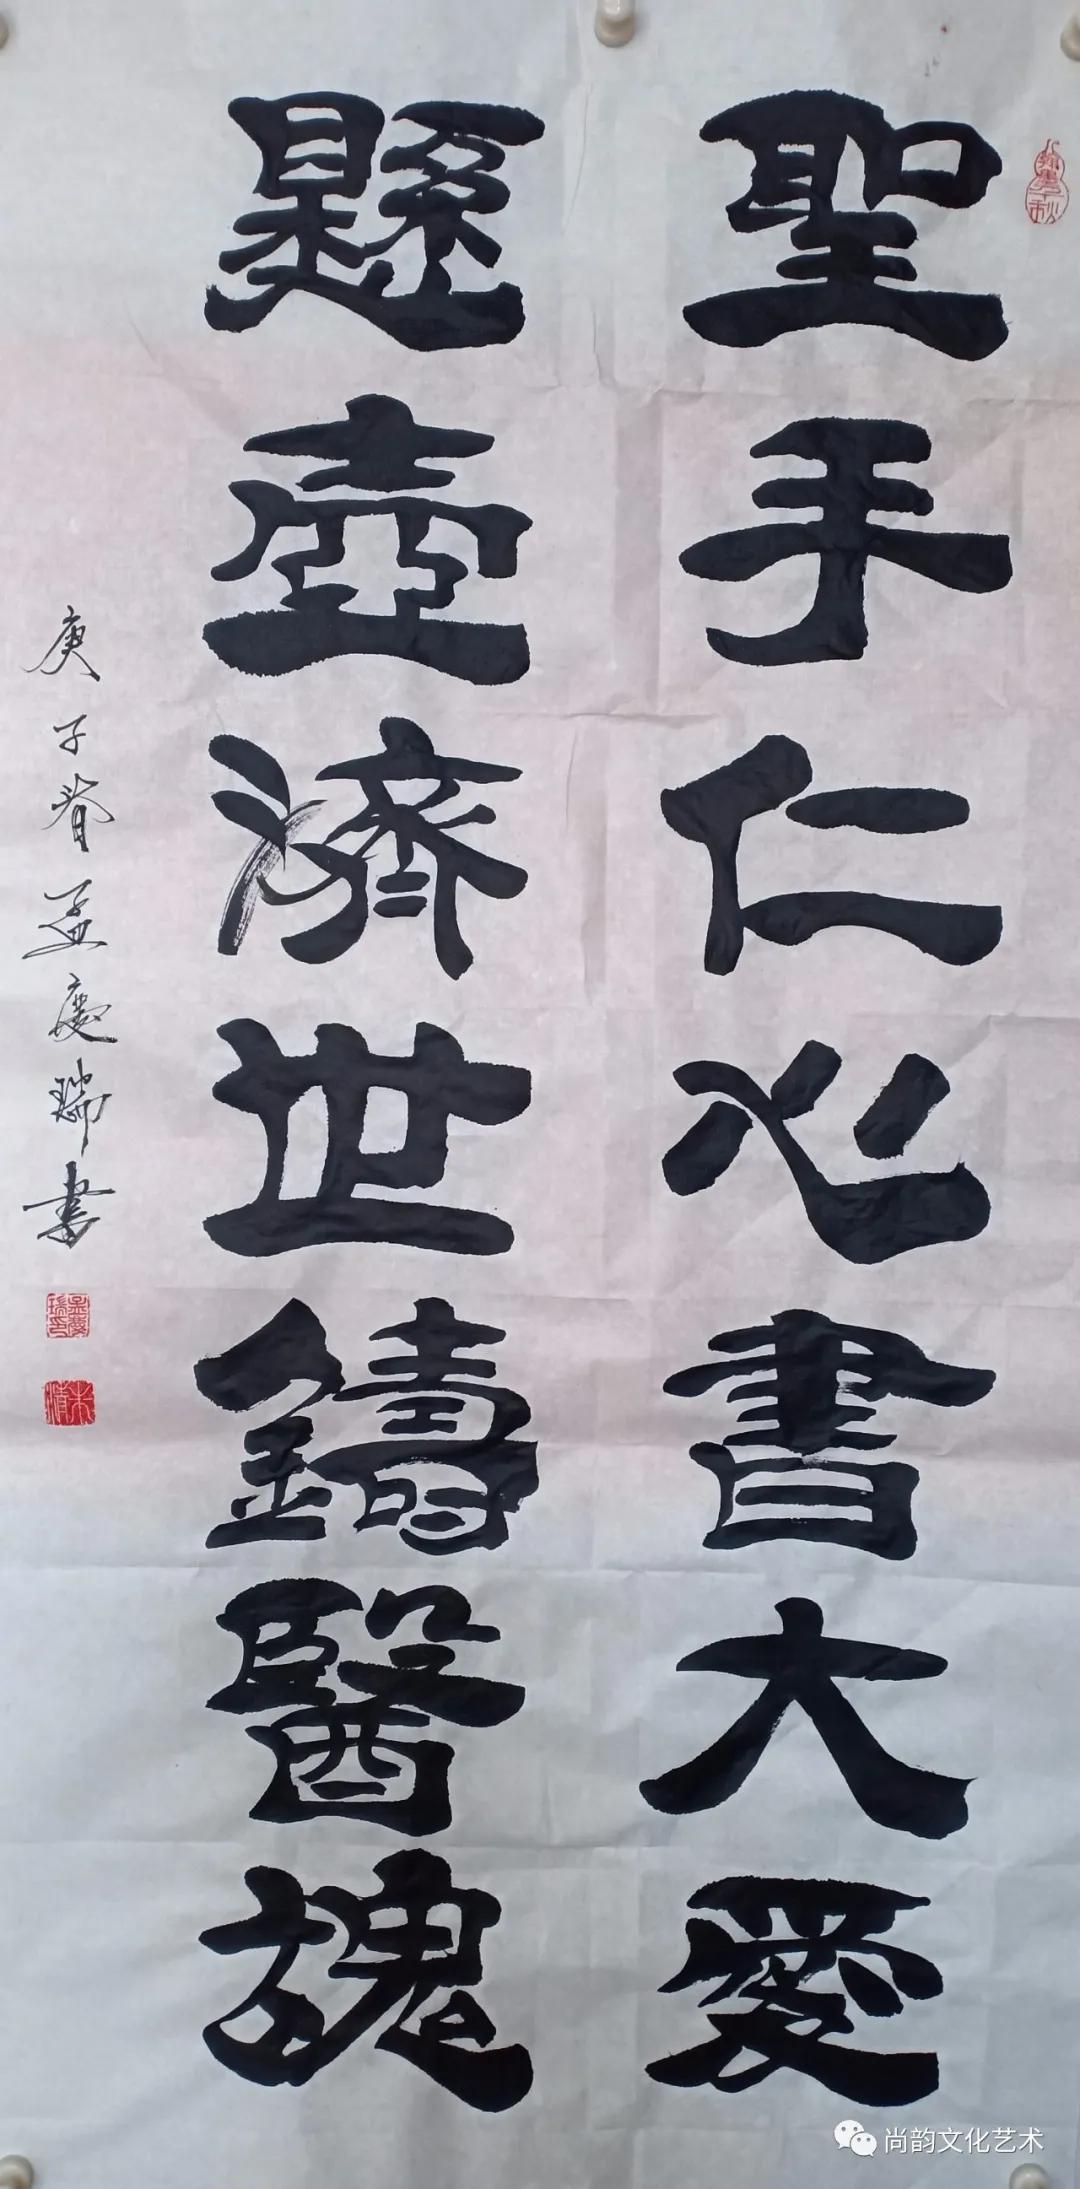 聖手仁心書大愛
懸壺濟世鑄醫魂
庚子春孟慶瑞書
尚韵文化艺术